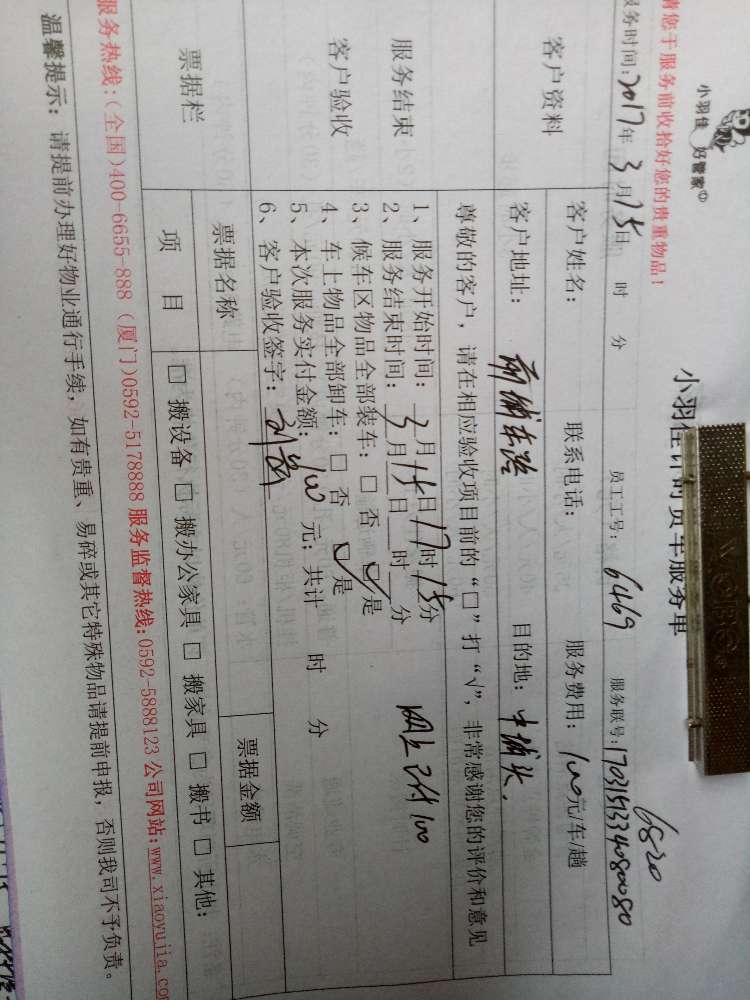 小羽佳 好管家
小羽佳计时货车服务单
6820
您于服务前收拾好您的贵重物品！
服务时间：2017年3月15日 时 分 员工工号：6469 服务联号：
客户资料
客户姓名： 联系电话： 服务费用：100元/车/趟
客户地址： 目的地：
尊敬的客户，请在相应验收项目前的“□”打“√”，非常感谢您的评价和意见
服务结束
客户验收
1、服务开始时间：3月15日17时15分
2、服务结束时间：__月__日__时__分
3、候车区物品全部装车：□ 否 ☑是
4、车上物品全部卸车：□ 否 ☑是
5、本次服务实付金额：100 元；共计 时 分
6、客户验收签字：
网上已付100
票据栏
票据名称 票据金额
项 目 □ 搬设备 □ 搬办公家具 □ 搬家具 □ 搬书 □ 其他：
服务热线：(全国)400-6655-888 (厦门)0592-5178888 服务监督热线：0592-5888123 公司网站：www.xiaoyujia.co
温馨提示：请提前办理好物业通行手续，如有贵重、易碎或其它特殊物品请提前申报，否则我司不予负责。